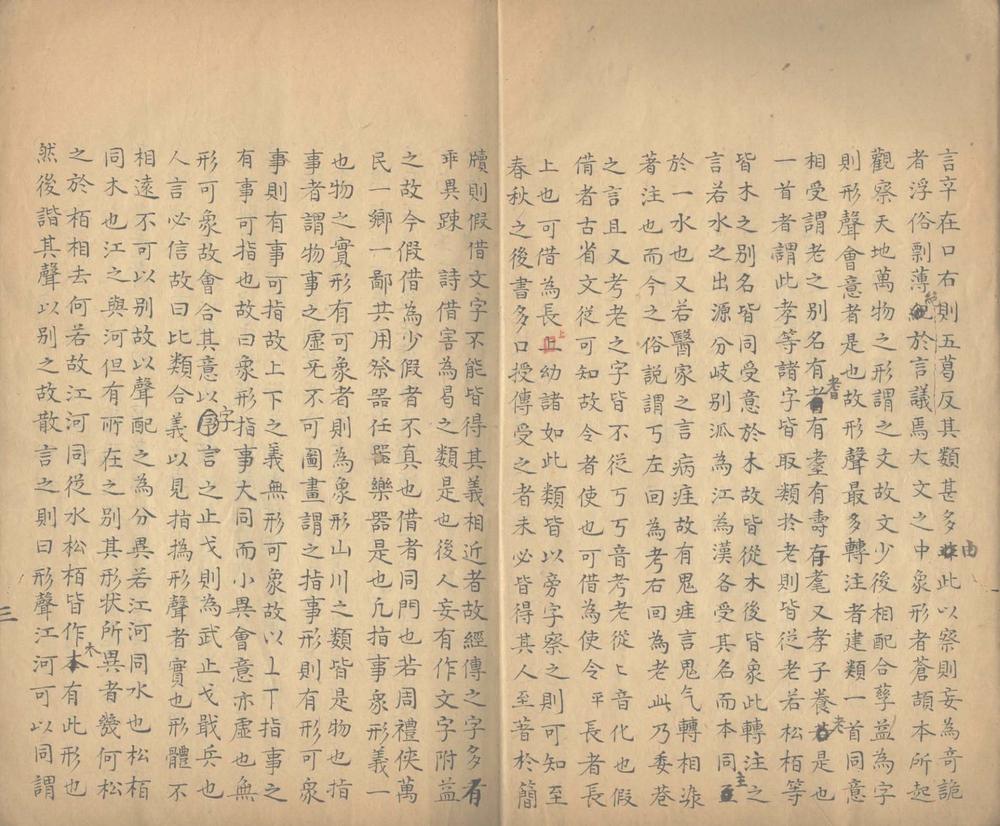 言辛在口右則五葛反其類甚多由此以察則妄為奇詭
者浮俗剽薄絶於言議焉大文之中象形者蒼頡本所起
觀察天地萬物之形謂之文故文少後相配合孳益為字
則形聲會意者是也故形聲最多轉注者建類一首同意
相受謂老之別名有耆有耋有壽有耄又孝子養老是也
一首者謂此孝等諸字皆取類於老則皆從老若松栢等
皆木之別名皆同受意於木故皆從木後皆象此轉注之
言若水之出源分歧別派為江為漢各受其名而本同主
於一水也又若醫家之言病疰故有鬼疰言鬼气轉相染
著注也而今之俗說謂丂左回為考右回為老此乃委巷
之言且又考老之字皆不從丂丂音考老從匕音化也假
借者古省文從可知故令者使也可借為使令平長者長
上也可借為長上幼諸如此類皆以旁字察之則可知至
春秋之後書多口授傳受之者未必皆得其人至著於簡
牘則假借文字不能皆得其義相近者故經傳之字多有
乖異踈詩借害為曷之類是也後人妄有作文字附益
之故今假借為少假者不真也借者同門也若周禮俠萬
民一鄉一鄙共用祭器任器樂器是也凢指事象形義一
也物之實形有可象者則為象形山川之類皆是物也指
事者謂物事之虛旡不可圖畫謂之指事形則有形可象
事則有事可指故上下之義無形可象故以丄丅指事之
有事可指也故曰象形指事大同而小異會意亦虛也無
形可象故會合其意以字言之止戈則為武止戈戢兵也
人言必信故曰比類合義以見指撝形聲者實也形體不
相遠不可以別故以聲配之為分異若江河同水也松栢
同木也江之與河但有所在之別其形狀所異者幾何松
之於栢相去何若故江河同從水松栢皆作木有此形也
然後諧其聲以別之故散言之則曰形聲江河可以同謂
三